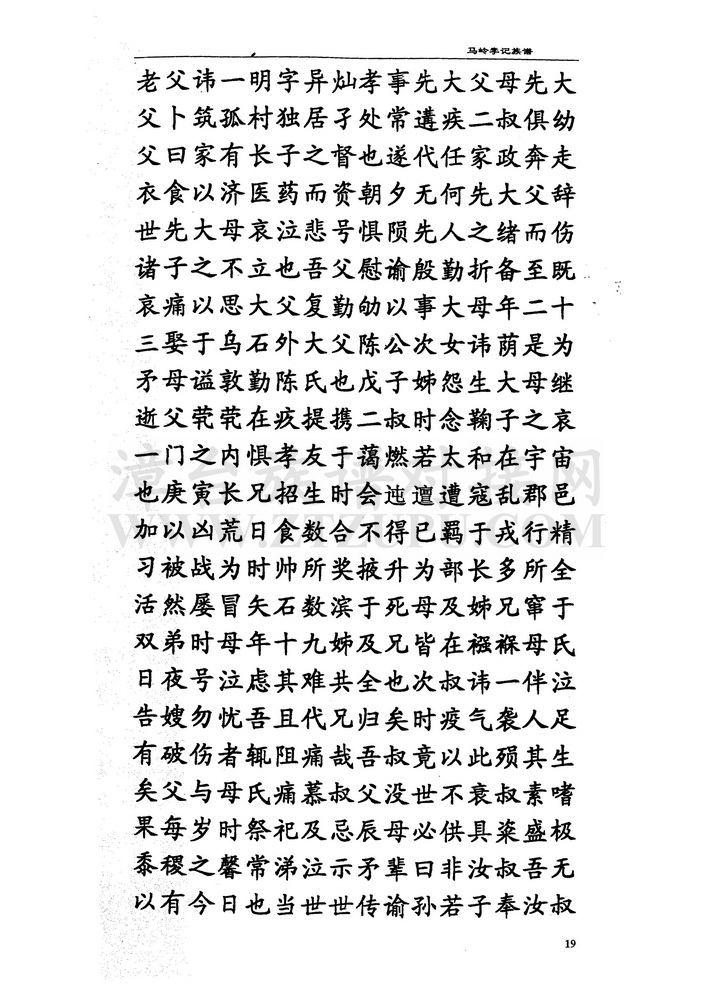 马岭李记族谱
老父讳一明字异灿孝事先大父母先大
父卜筑孤村独居孑处常遘疾二叔俱幼
父曰家有长子之督也遂代任家政奔走
衣食以济医药而资朝夕无何先大父辞
世先大母哀泣悲号惧陨先人之绪而伤
诸子之不立也吾父慰谕殷勤折备至既
哀痛以思大父复勤劬以事大母年二十
三娶于乌石外大父陈公次女讳荫是为
矛母谥敦勤陈氏也戊子姊怨生大母继
逝父茕茕在疚提携二叔时念鞠子之哀
一门之内惧孝友于蔼燃若太和在宇宙
也庚寅长兄招生时会迍邅遭寇乱郡邑
加以凶荒日食数合不得已羁于戎行精
习被战为时帅所奖掖升为部长多所全
活然屡冒矢石数滨于死母及姊兄窜于
双弟时母年十九姊及兄皆在襁褓母氏
日夜号泣虑其难共全也次叔讳一伴泣
告嫂勿忧吾且代兄归矣时疫气袭人足
有破伤者辄阻痛哉吾叔竟以此殒其生
矣父与母氏痛慕叔父没世不衰叔素嗜
果每岁时祭祀及忌辰母必供具粢盛极
黍稷之馨常涕泣示矛辈曰非汝叔吾无
以有今日也当世世传谕孙若子奉汝叔
19
漳台族谱对接网
WWW.ZTZUPU.COM